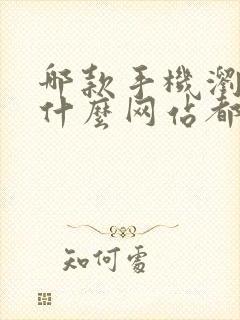 哪款手機瀏
什麼网站都
知何處